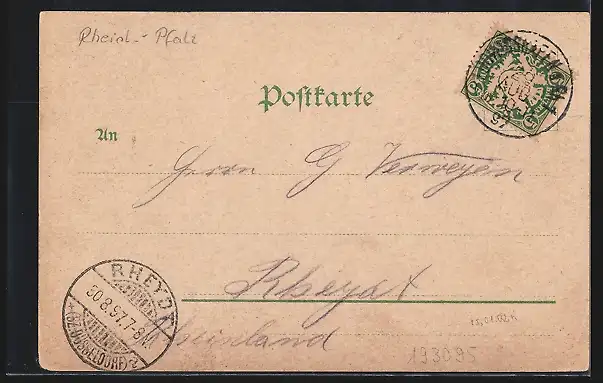 Rheinl.- Pfalz
Postkarte
An
Herrn G Verweyen
Rheydt
Rheinland
RHEYDT
30.8.97.7-8N.
(BZ. DÜSSELDORF)
5
AUG
97
193095